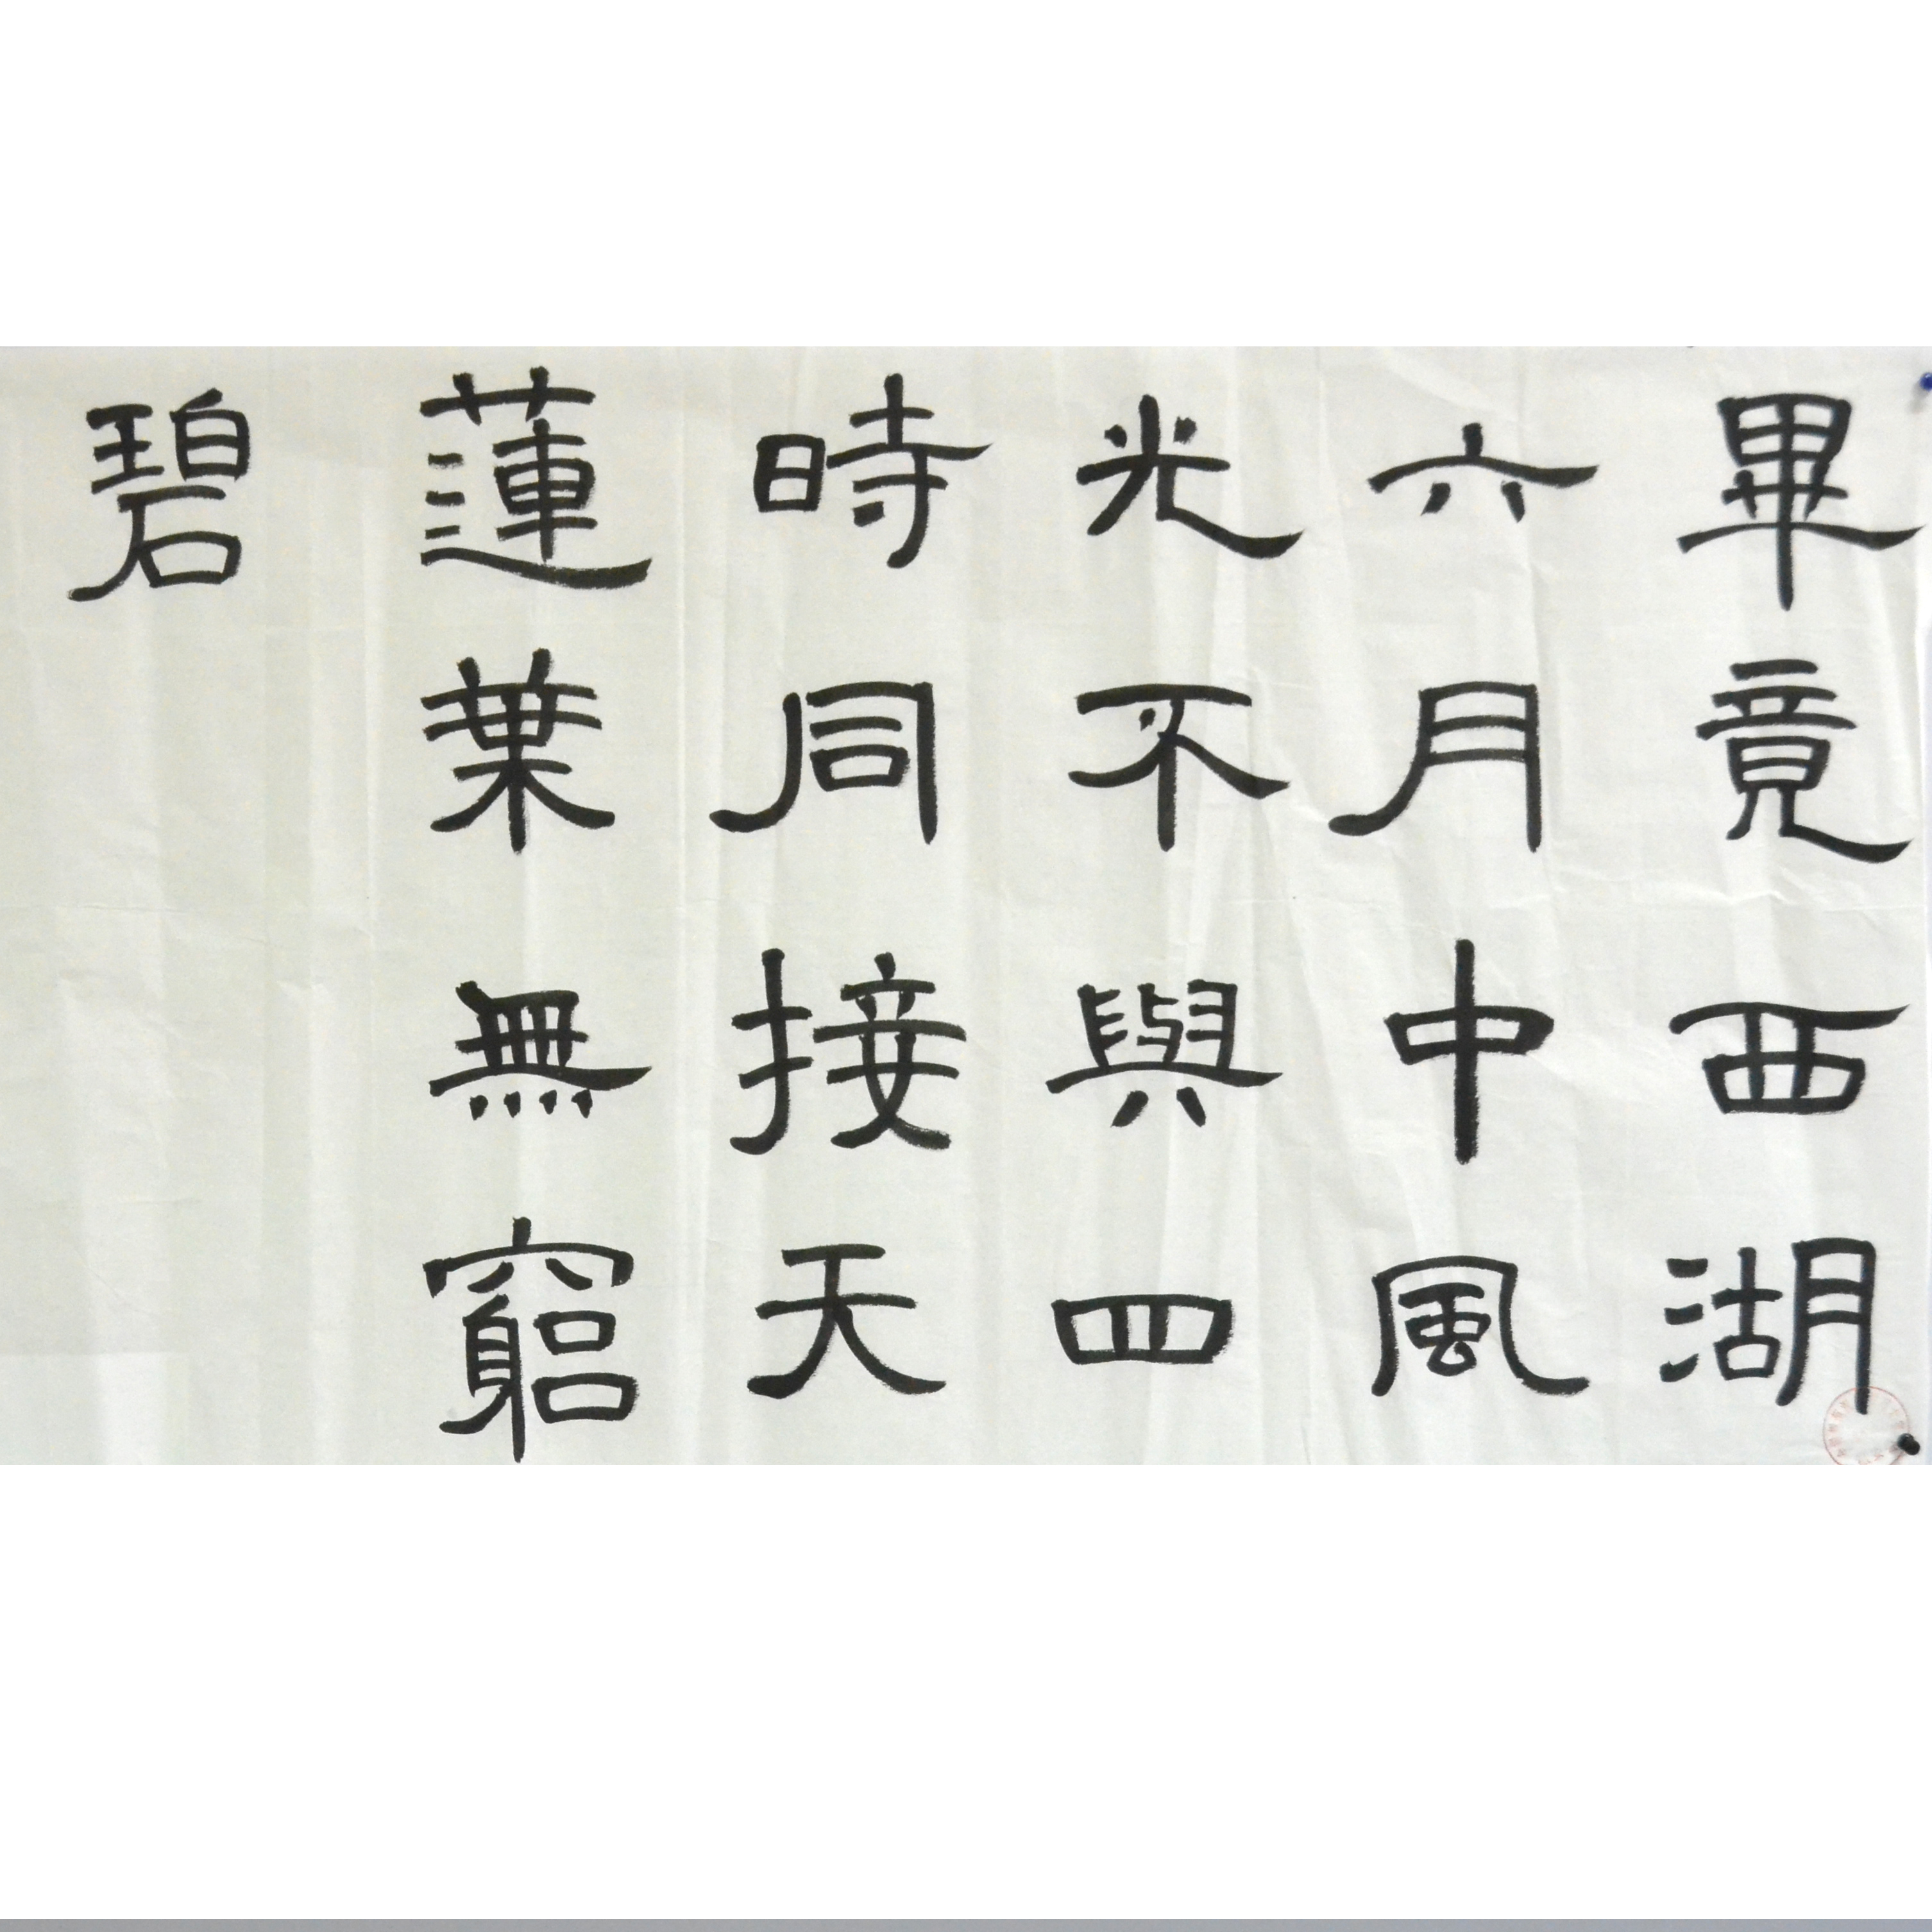 畢竟西湖
六月中風
光不與四
時同接天
蓮葉無窮
碧